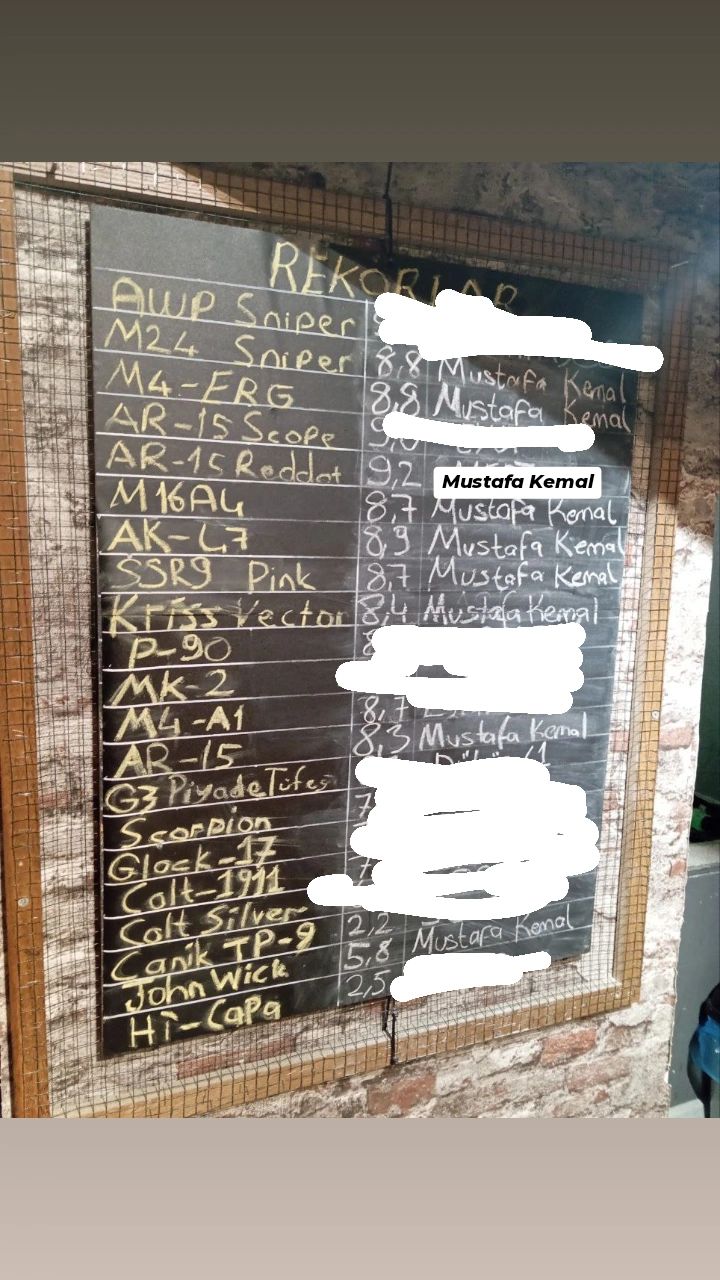 REKORLAR
AWP Sniper
M24 Sniper 8,8 Mustafa Kemal
M4-ERG 8,8 Mustafa Kemal
AR-15 Scope
AR-15 Reddot 9,2 Mustafa Kemal
M16A4 8,7 Mustafa Kemal
AK-47 8,9 Mustafa Kemal
SSR9 Pink 8,7 Mustafa Kemal
Kriss Vector 8,4 Mustafa Kemal
P-90
MK-2
M4-A1 8,7
AR-15 8,3 Mustafa Kemal
G3 Piyade Tüfeği
Scorpion
Glock-17
Colt-1911
Colt Silver
Canik TP-9 2,2
John Wick 5,8 Mustafa Kemal
Hi-Capa 2,5